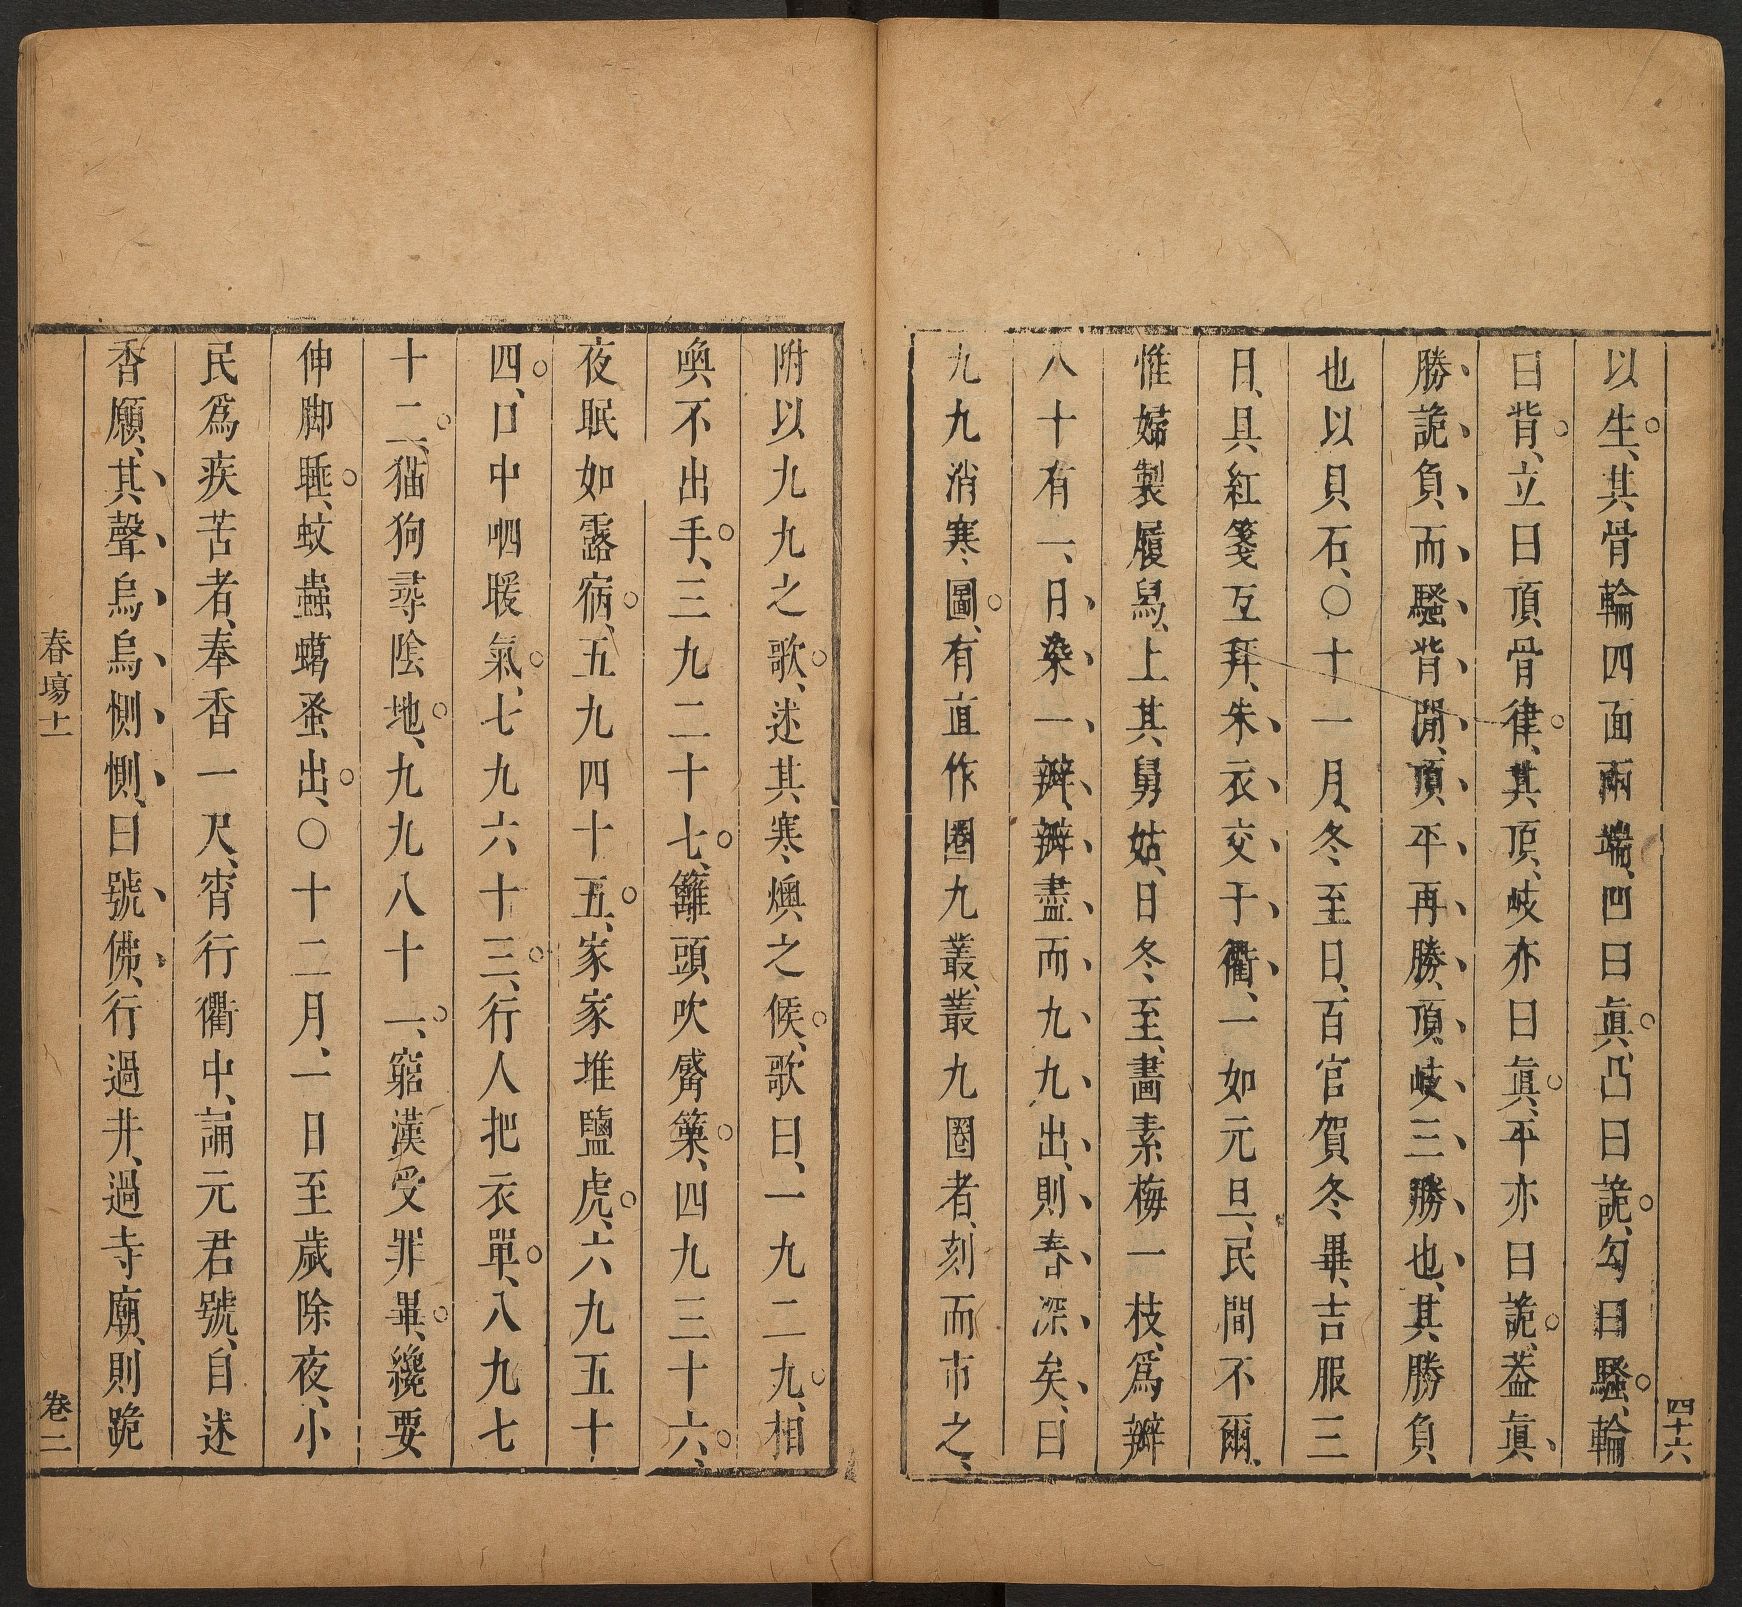 四十六
以生、其骨輪四面兩端、凹曰眞、凸曰詭、勾曰騷、輪
曰背、立曰頂骨律、其頂、岐亦曰眞、平亦曰詭、葢眞
勝詭負、而騷背閒、頂平再勝、頂岐三勝也、其勝負
也以貝石、○十一月、冬至日、百官賀冬畢、吉服三
日、具紅箋互拜、朱衣交于衢、一如元旦、民間不爾、
惟婦製履舄、上其舅姑、日冬至、畵素梅一枝、爲瓣
八十有一、日染一瓣、瓣盡而九九出、則春深矣、曰
九九消寒圖、有直作圈九叢、叢九圈者、刻而市之、
附以九九之歌、述其寒燠之候、歌曰、一九二九、相
喚不出手、三九二十七、籬頭吹觱篥、四九三十六、
夜眠如露宿、五九四十五、家家堆鹽虎、六九五十
四、口中呬暖氣、七九六十三、行人把衣單、八九七
十二、猫狗尋陰地、九九八十一、窮漢受罪畢、纔要
伸脚睡、蚊蟲蟣蚤出、○十二月、一日至歲除夜、小
民爲疾苦者、奉香一尺、宵行衢中、誦元君號、自述
香願、其聲烏烏惻惻、曰號佛、行過井、過寺廟、則跪
春場十
卷二